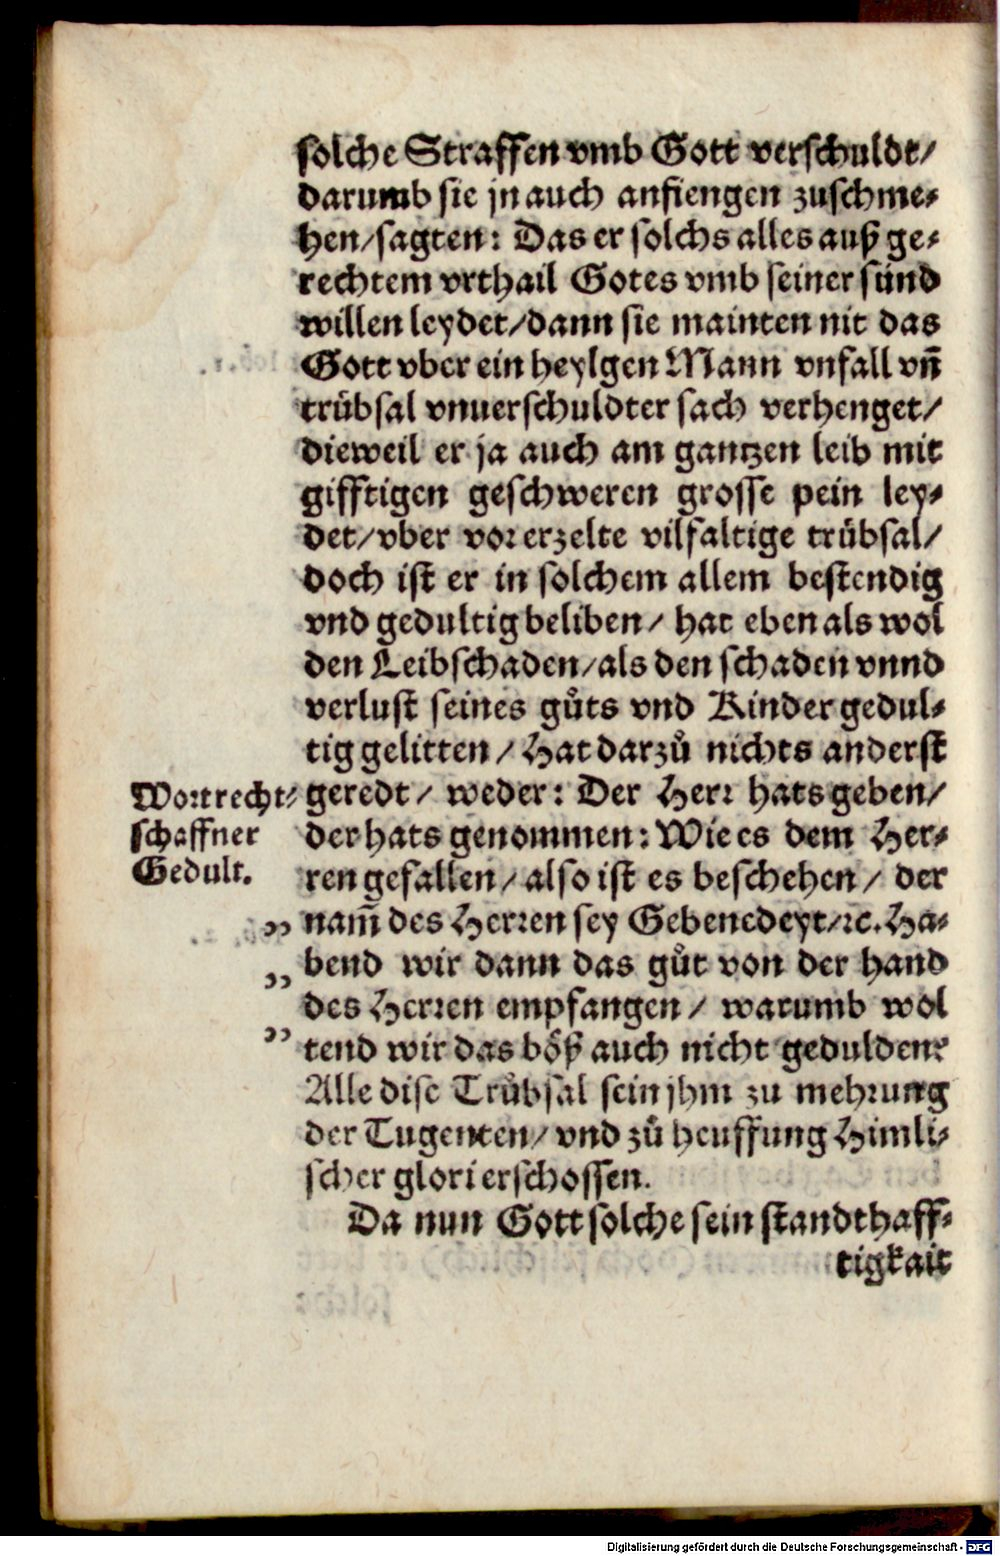 solche Straffen vmb Gott verschuldt/
darumb sie jn auch anfiengen zuschme⸗
hen/sagten: Das er solchs alles auß ge⸗
rechtem vrthail Gotes vmb seiner sünd
willen leydet/dann sie mainten nit das
Gott vber ein heylgen Mann vnfall vñ
trübsal vnuerschuldter sach verhenget/
dieweil er ja auch am gantzen leib mit
gifftigen geschweren grosse pein ley⸗
det/vber vor erzelte vilfaltige trübsal/
doch ist er in solchem allem bestendig
vnd gedultig beliben/ hat eben als wol
den Leibschaden/als den schaden vnnd
verlust seines gůts vnd Kinder gedul⸗
tig gelitten/ Hat darzů nichts anderst
geredt/ weder: Der Herr hats geben/
der hats genommen: Wie es dem Her⸗
ren gefallen/ also ist es beschehen/ der
nam̄ des Herren sey Gebenedeyt/ꝛc. Ha⸗
bend wir dann das gůt von der hand
des Herren empfangen/ warumb wol
tend wir das böß auch nicht gedulden?
Alle dise Trübsal sein jhm zu mehrung
der Tugenten/ vnd zů heuffung Himli⸗
scher glori erschossen.
Da nun Gott solche sein standthaff⸗
tigkait
Wort recht⸗
schaffner
Gedult.
„
„
„
Digitalisierung gefördert durch die Deutsche Forschungsgemeinschaft - DFG